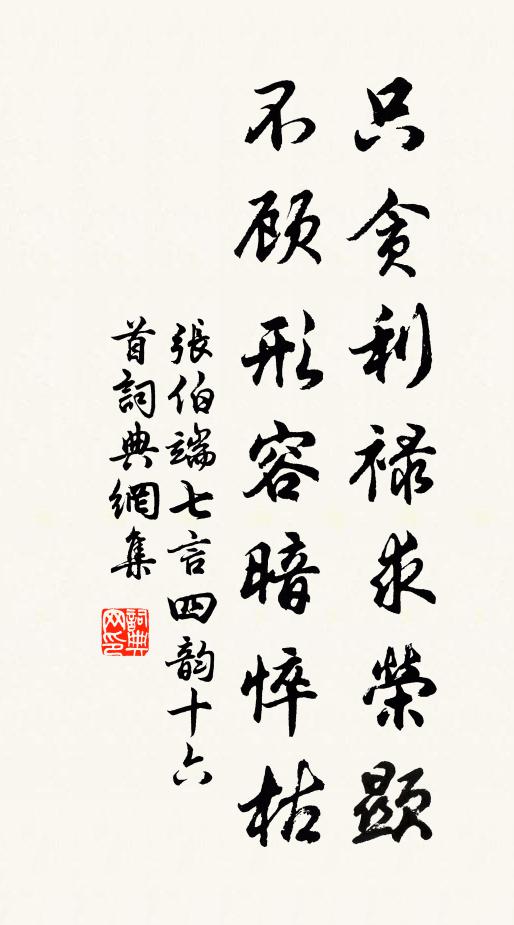 只贪利禄求榮顯
不顾形容暗悴枯
張伯端七言四韵十六
首詞典網集
詞典網印